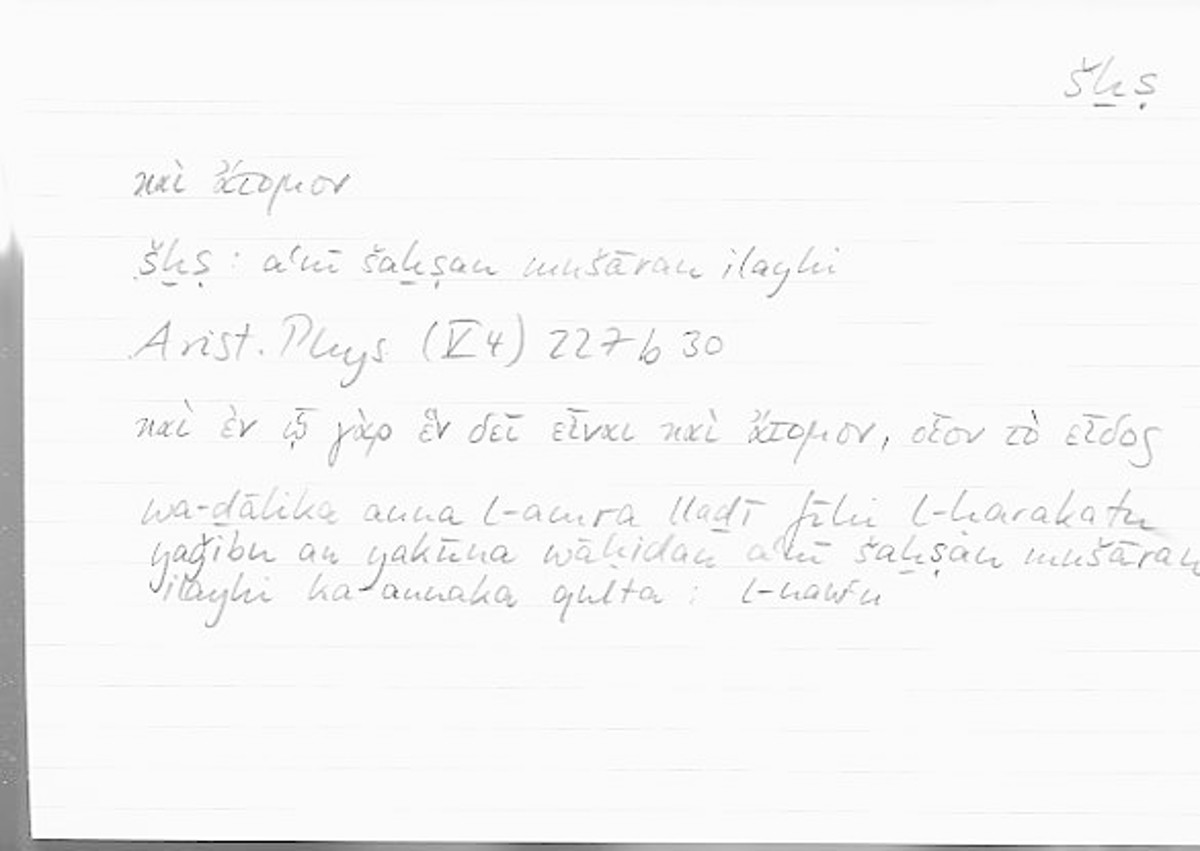 šḫṣ
καὶ ἄτομον
šḫṣ : aʿnī šaḫṣan mušāran ilayhi
Arist. Phys (V 4) 227 b 30
καὶ ἐν ᾧ γὰρ ἓν δεῖ εἶναι καὶ ἄτομον, οἷον τὸ εἶδος
wa-ḏālika anna l-amra llaḏī fīhi l-ḥarakatu
yaǧibu an yakūna wāḥidan aʿnī šaḫṣan mušāran
ilayhi ka-annaka qulta : l-nawʿu